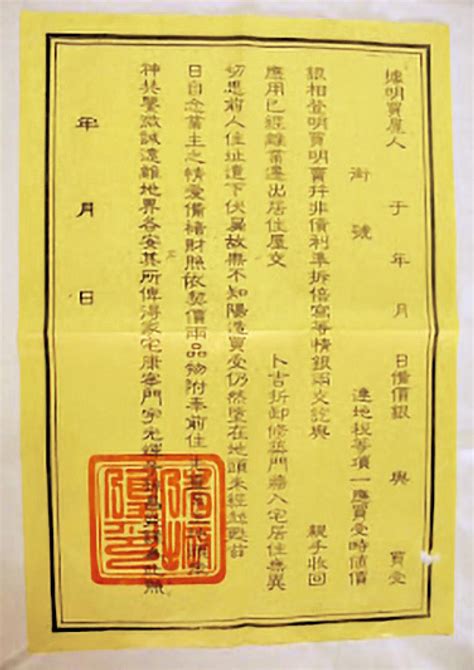 據明買屋人 于 年 月 日備價銀 與 買受
街 號 連地稅等項一應買受時値價
銀相登明買明賣幷非債利準拆倍寫等情銀兩交訖與 親手收回
應用已經離業遷出居住屋交 卜吉折卸修葺門牆入宅居住無異
切思前人住址遺下伏冀故無不知陽造買受仍然墮在地頭未經超甦昔
日自念業主之情愛備褚財照依契價兩品物附奉前住
神共鑒微誠遠離地界各安其所俾得家宅康寧門宇光 照
年 月 日